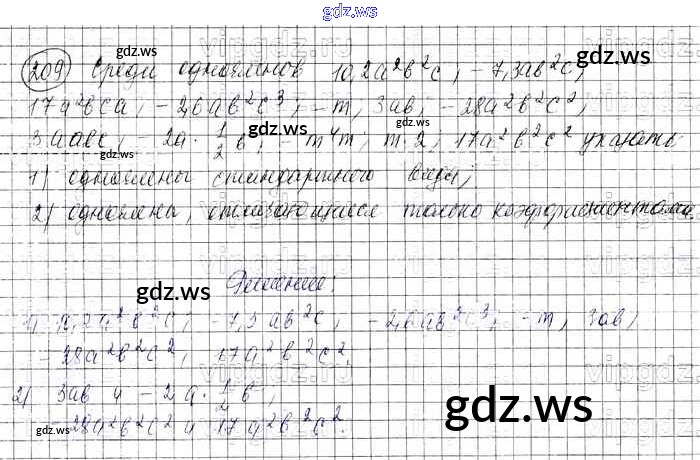 gdz.ws
209) Среди одночленов 10,2a²b²c, -7,3ab²c,
17a²bca, -2,6ab²c³, -m, 3ab, -28a²b²c²,
3aabc, -2a·1/2b, -m⁴m, m·2, 17a²b²c² указать
1) одночлены стандартного вида;
2) одночлены, отличающиеся только коэффициентами.
Решение:
1) 10,2a²b²c, -7,3ab²c, -2,6ab²c³, -m, 3ab,
-28a²b²c², 17a²b²c².
2) 3ab и -2a·1/2b,
-28a²b²c² и 17a²b²c².
gdz.ws
gdz.ws
gdz.ws
gdz.ws
gdz.ws
gdz.ws
gdz.ws